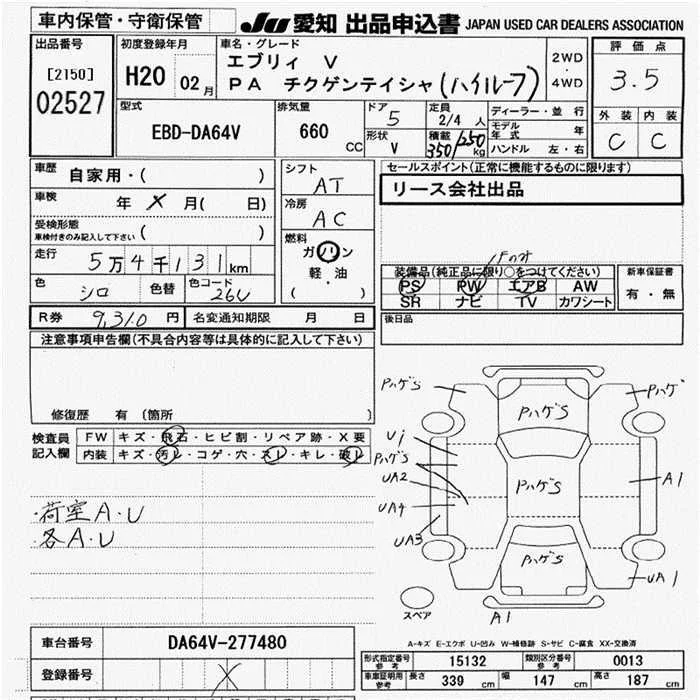 車内保管・守衛保管
JU 愛知 出品申込書 JAPAN USED CAR DEALERS ASSOCIATION
出品番号
[2150]
02527
初度登録年月
H20 02月
車名・グレード
エブリィ V
PA チクゲンテイシャ(ハイルーフ)
2WD
・
4WD
評価点
3.5
外装 内装
C C
型式
EBD-DA64V
排気量
660 CC
ドア
5
形状
V
定員
2/4 人
積載
350/250 kg
ディーラー・並 行
モデル年式 年
ハンドル 左・右
車歴
自家用・( )
車検
年 X 月( 日)
受検形態
車検付きのみ記入して下さい ( )
走行
5万4千131km
色 シロ 色替 色コード 26U
シフト
AT
冷房
AC
燃料
ガソリン
軽・油
( )
セールスポイント(正常に機能するものに限ります)
リース会社出品
装備品(純正品に限り○をつけてください)
PS PW エアB AW
SR ナビ TV カワシート
新車保証書
有・無
後日品
R券 9,310 円 名変通知期限 月 日
注意事項申告欄(不具合内容等は具体的に記入して下さい)
修復歴 有 〔箇所 〕
検査員記入欄
FW キズ・飛石・ヒビ割・リペア跡・X要
内装 キズ・汚レ・コゲ・穴・スレ・キレ・破レ
・荷室A・U
・各A・U
PハゲS
PハゲS
Pハゲ
Ui
PハゲS
UA2
PハゲS
A1
UA4
UA3
PハゲS
UA1
スペア
A1
A-キズ E-エクボ U-凹み W-補修跡 S-サビ C-腐食 XX-交換済
車台番号 DA64V-277480
登録番号 X
形式指定番号 参考 15132 類別区分番号 参考 0013
車車証明用 参考 長さ 339 cm 幅 147 cm 高さ 187 cm